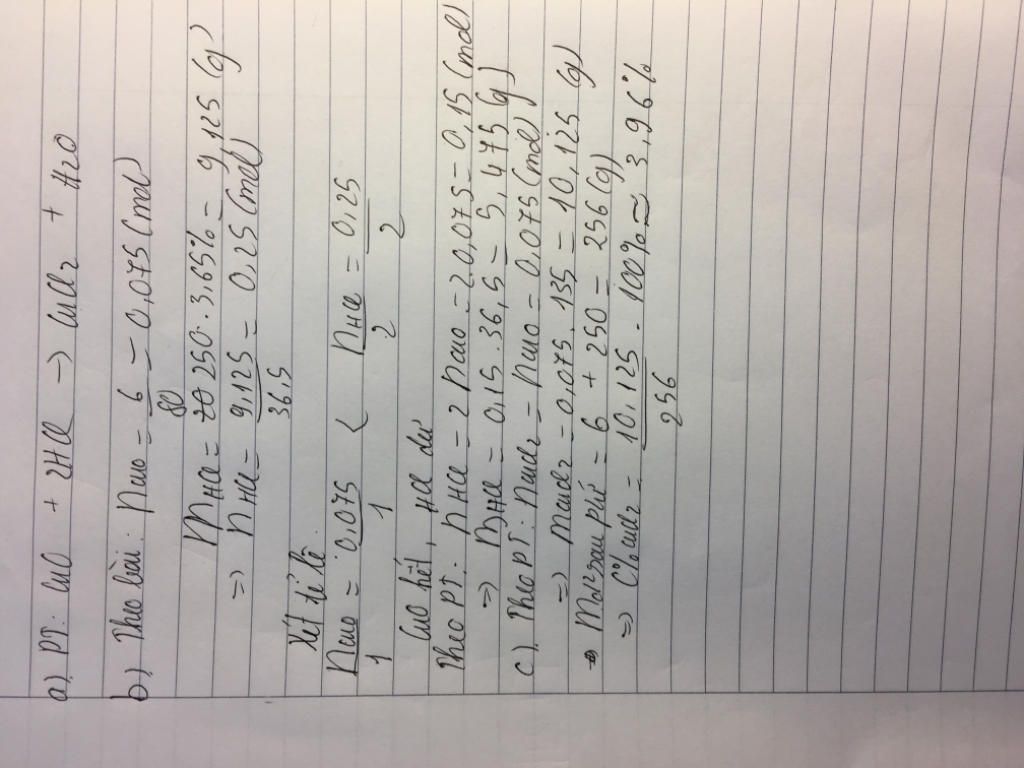 a) PT: CuO + 2HCl → CuCl2 + H2O
b) Theo bài: nCuO = 6/80 = 0,075 (mol)
mHCl = 250 . 3,65% = 9,125 (g)
=> nHCl = 9,125/36,5 = 0,25 (mol)
Xét tỉ lệ:
nCuO/1 = 0,075/1 < nHCl/2 = 0,25/2
CuO hết, HCl dư
Theo PT: nHCl = 2 nCuO = 2.0,075 = 0,15 (mol)
=> mHCl = 0,15 . 36,5 = 5,475 (g)
c) Theo PT: nCuCl2 = nCuO = 0,075 (mol)
=> mCuCl2 = 0,075 . 135 = 10,125 (g)
mdd sau pứ = 6 + 250 = 256 (g)
=> C% CuCl2 = 10,125/256 . 100% ≈ 3,96%